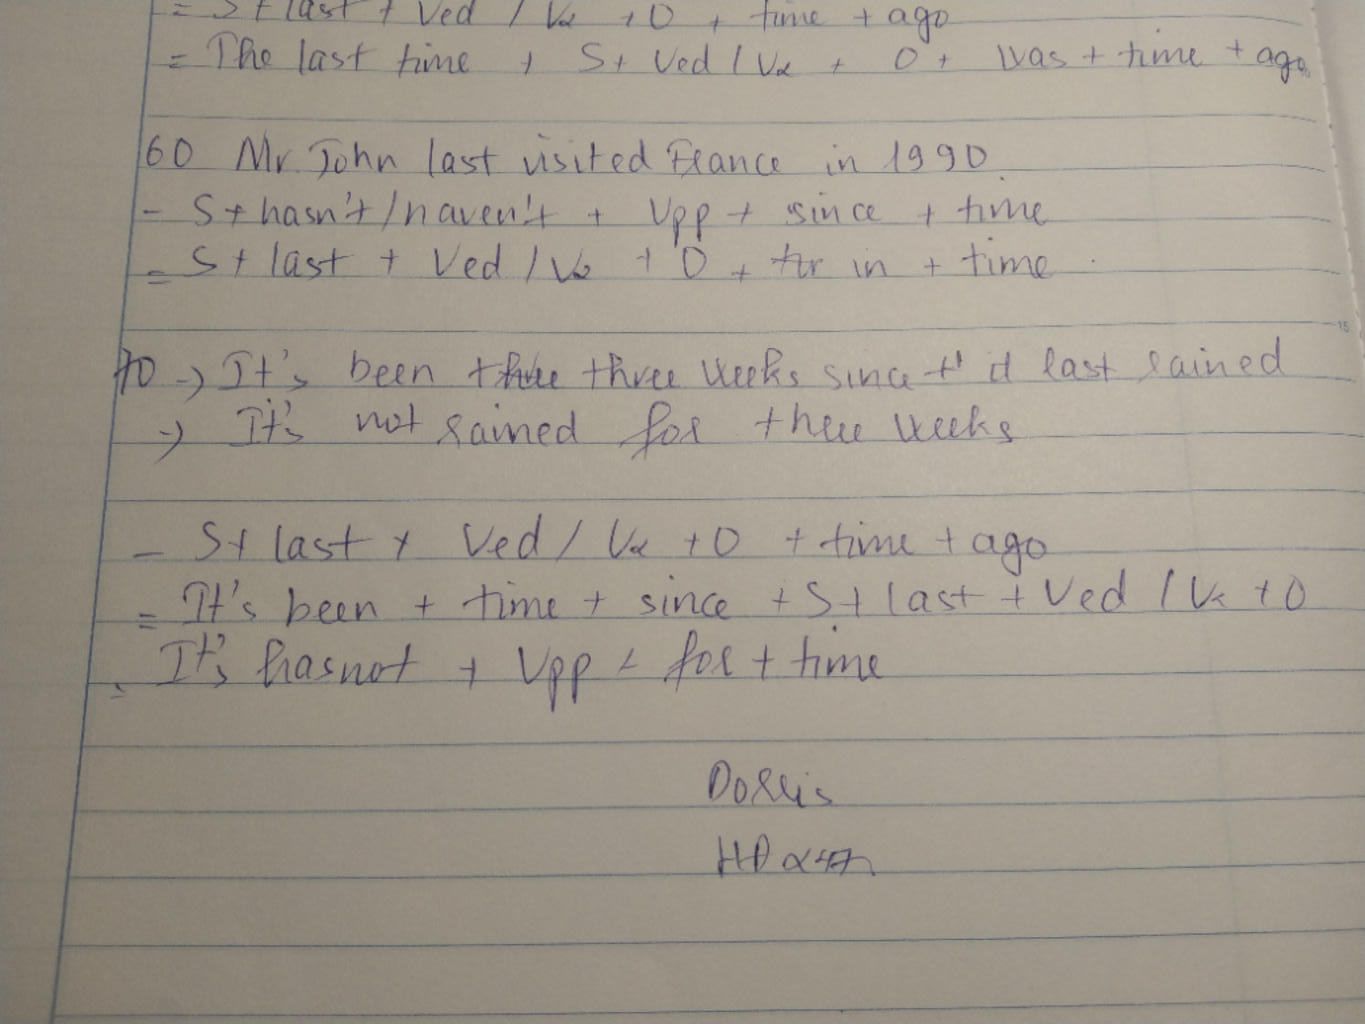 = S + last + Ved / V2 + O + time + ago
= The last time + S + Ved / V2 + O + was + time + ago
60 Mr John last visited France in 1990.
- S + hasn't / haven't + Vpp + since + time
= S + last + Ved / V2 + O + in + time.
70 -> It's been three weeks since it last rained
-> It's not rained for three weeks
- S + last + Ved / V2 + O + time + ago
= It's been + time + since + S + last + Ved / V2 + O
= It's hasnot + Vpp + for + time
Dorris